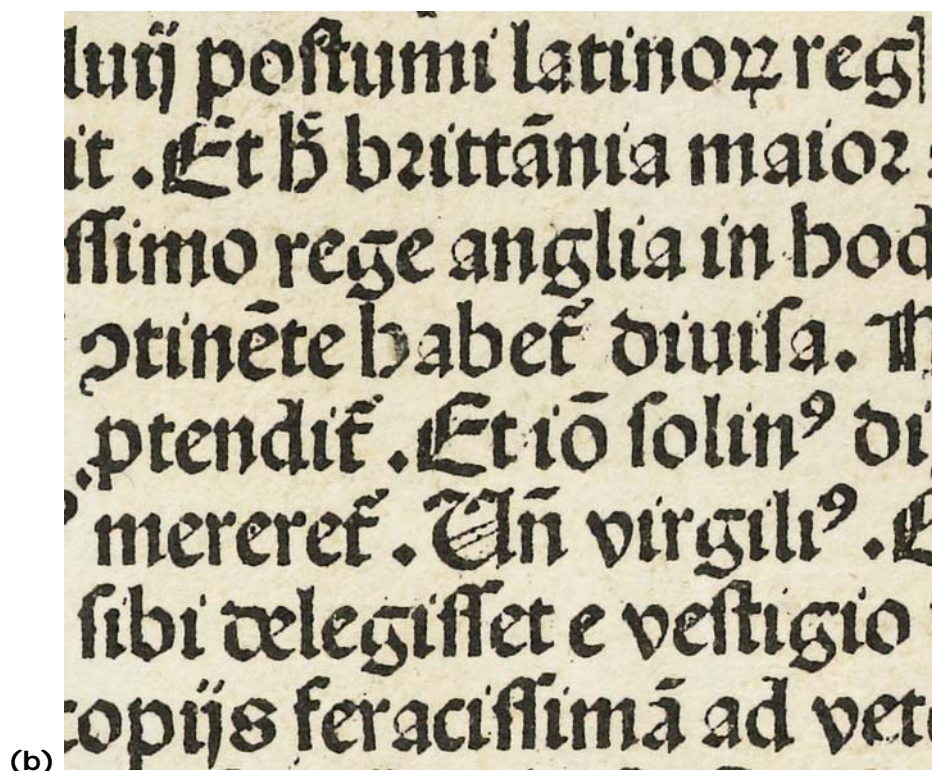 luij poſtumi latinoꝝ reg
it . Et h̄ brittānia maior :
ſſimo rege anglia in hod
ꝯtinēte habet᷑ diuiſa .
ꝓtendit᷑ . Et iō ſolinꝰ di
mereret᷑ . Vn̄ virgiliꝰ .
ſibi delegiſſet e veſtigio
copijs feraciſſimā ad vete
(b)